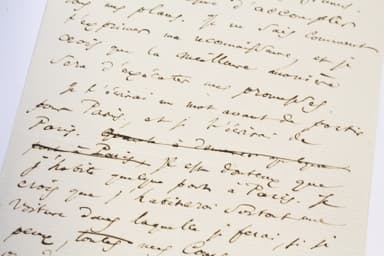 d'accomplir
tous mes plans. Je ne sais comment
t'exprimer ma reconnaissance, et je
crois que la meilleure manière
sera d'exécuter mes promesses.
Je t'écrirai un mot avant de partir
pour Paris, et je t'écrirai de
Paris.
à Paris Je est douteux que
j'habite quelque part à Paris. Je
crois que j'habiterai surtout une
voiture dans laquelle je ferai, si je
peux, toutes mes